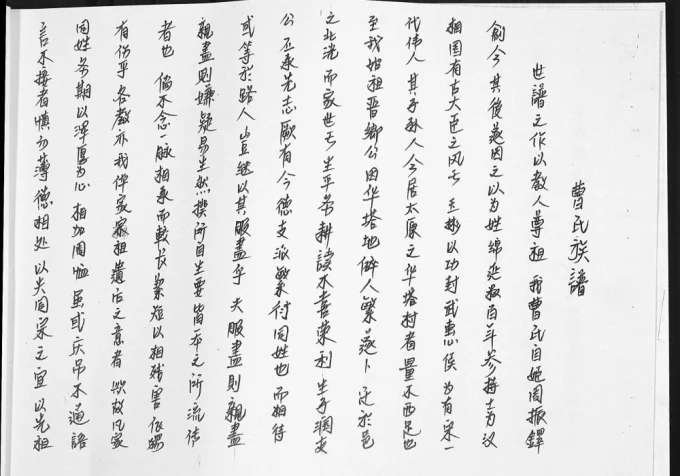 曹氏族譜
世譜之作以教人尊祖 我曹氏自姬周振鐸
創今 其後遂因之以為姓綿延数百年参接士为汉
相国有古大臣之风于 王彬以功封武惠侯 为有宋一
代伟人 其子孙人今居太原之华塔村者 量不西足也
至我始祖晋乡公因华塔地僻人繁遂卜 迁於邑
之北洸 而家世于 生平务耕读不喜荣利 生子润支
公 丕承先志厥有今德支派繁付同姓也 而相待
或等於路人 岂继以其服盡乎 夫服盡则親盡
親盡则嫌疑易生然揆所自生要皆本之所流传
者也 倘不念一脉相承而較长絜短以相残害 依
有伤乎 名教亦我俾家家祖遗后之意者 家
同姓务期以淳厚为心 相加周恤 虽或庆吊不通語
言不接者慎勿薄德相处 以失同宗之宜 以先祖